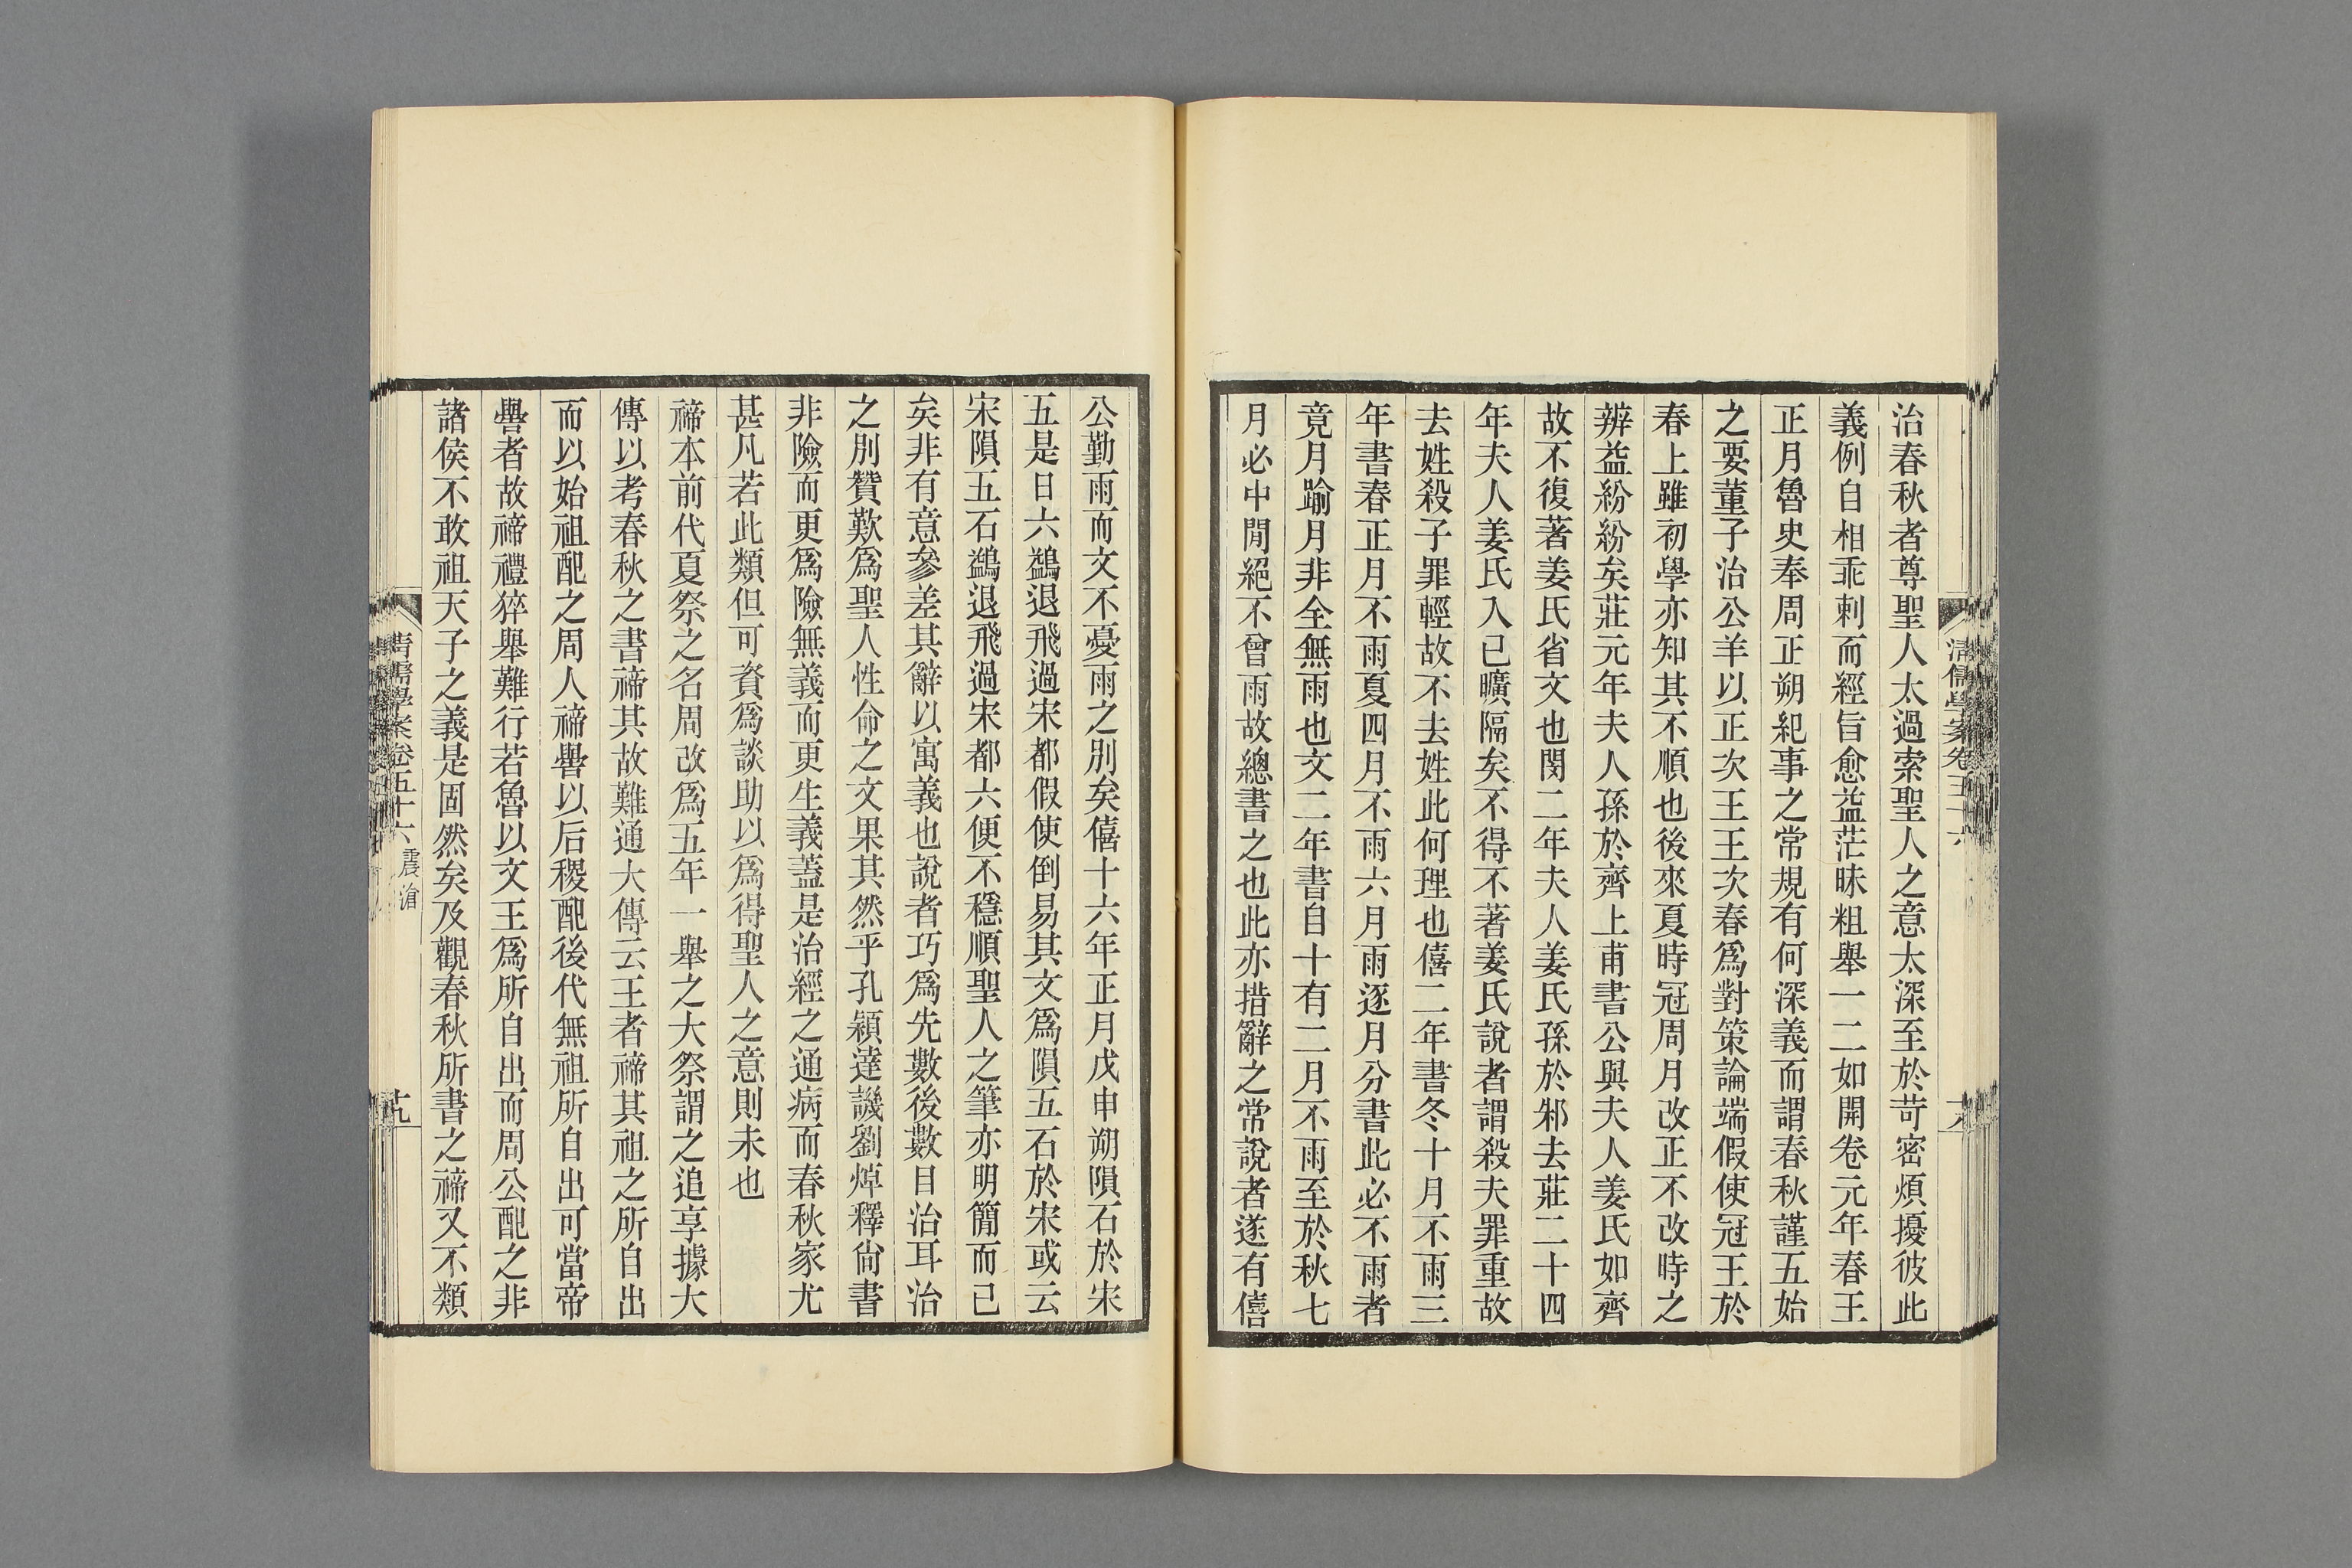 治春秋者尊聖人太過索聖人之意太深至於苛密煩擾彼此
義例自相乖剌而經旨愈益茫昧粗舉一二如開卷元年春王
正月魯史奉周正朔紀事之常規有何深義而謂春秋謹五始
之要董子治公羊以正次王王次春爲對策論端假使冠王於
春上雖初學亦知其不順也後來夏時冠周月改正不改時之
辨益紛紛矣莊元年夫人孫於齊上甫書公與夫人姜氏如齊
故不復著姜氏省文也閔二年夫人姜氏孫於邾去莊二十四
年夫人姜氏入已曠隔矣不得不著姜氏說者謂殺夫罪重故
去姓殺子罪輕故不去姓此何理也僖二年書冬十月不雨三
年書春正月不雨夏四月不雨六月雨逐月分書此必不雨者
竟月踰月非全無雨也文二年書自十有二月不雨至於秋七
月必中間絕不曾雨故總書之也此亦措辭之常說者遂有僖
清儒學案卷五十六
十八
公勤雨而文不憂雨之別矣僖十六年正月戊申朔隕石於宋
五是日六鷁退飛過宋都假使倒易其文爲隕五石於宋或云
宋隕五石鷁退飛過宋都六便不穩順聖人之筆亦明簡而已
矣非有意參差其辭以寓義也說者巧爲先數後數目治耳治
之別贊歎爲聖人性命之文果其然乎孔穎達譏劉焯釋尙書
非險而更爲險無義而更生義蓋是治經之通病而春秋家尤
甚凡若此類但可資爲談助以爲得聖人之意則未也
禘本前代夏祭之名周改爲五年一舉之大祭謂之追享據大
傳以考春秋之書禘其故難通大傳云王者禘其祖之所自出
而以始祖配之周人禘嚳以后稷配後代無祖所自出可當帝
嚳者故禘禮猝舉難行若魯以文王爲所自出而周公配之非
諸侯不敢祖天子之義是固然矣及觀春秋所書之禘又不類
清儒學案卷五十六 震滄
十九